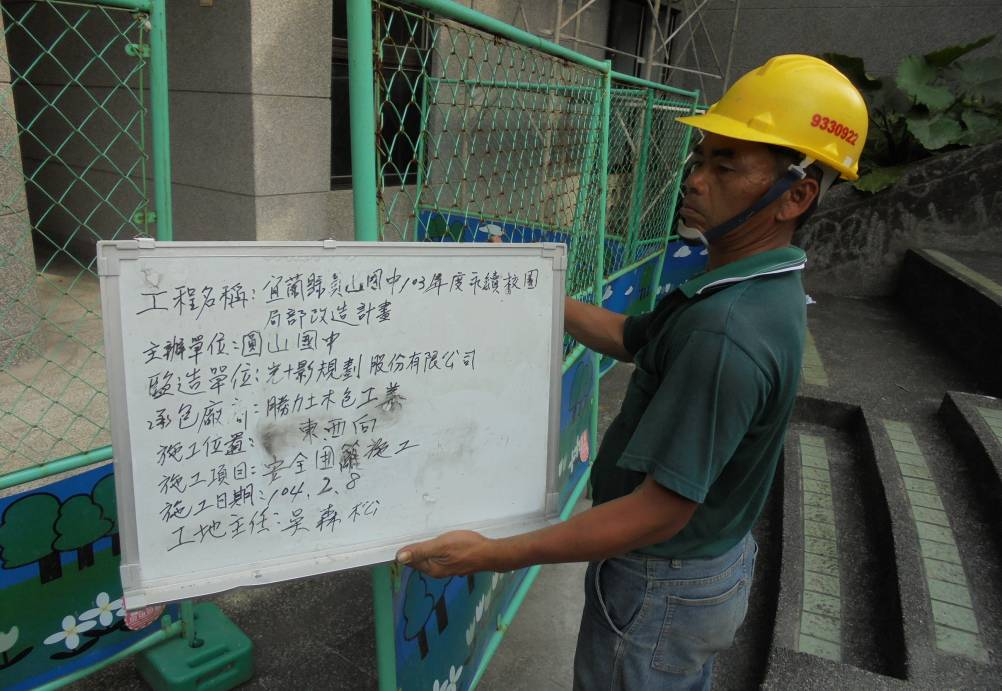 工程名稱:宜蘭縣員山國中103年度永續校園
局部改造計畫
主辦單位:圓山國中
監造單位:光+影規劃股份有限公司
承包廠商:勝力土木包工業
施工位置:東西向
施工項目:安全圍籬施工
施工日期:104.2.8
工地主任:吳森松
9330922